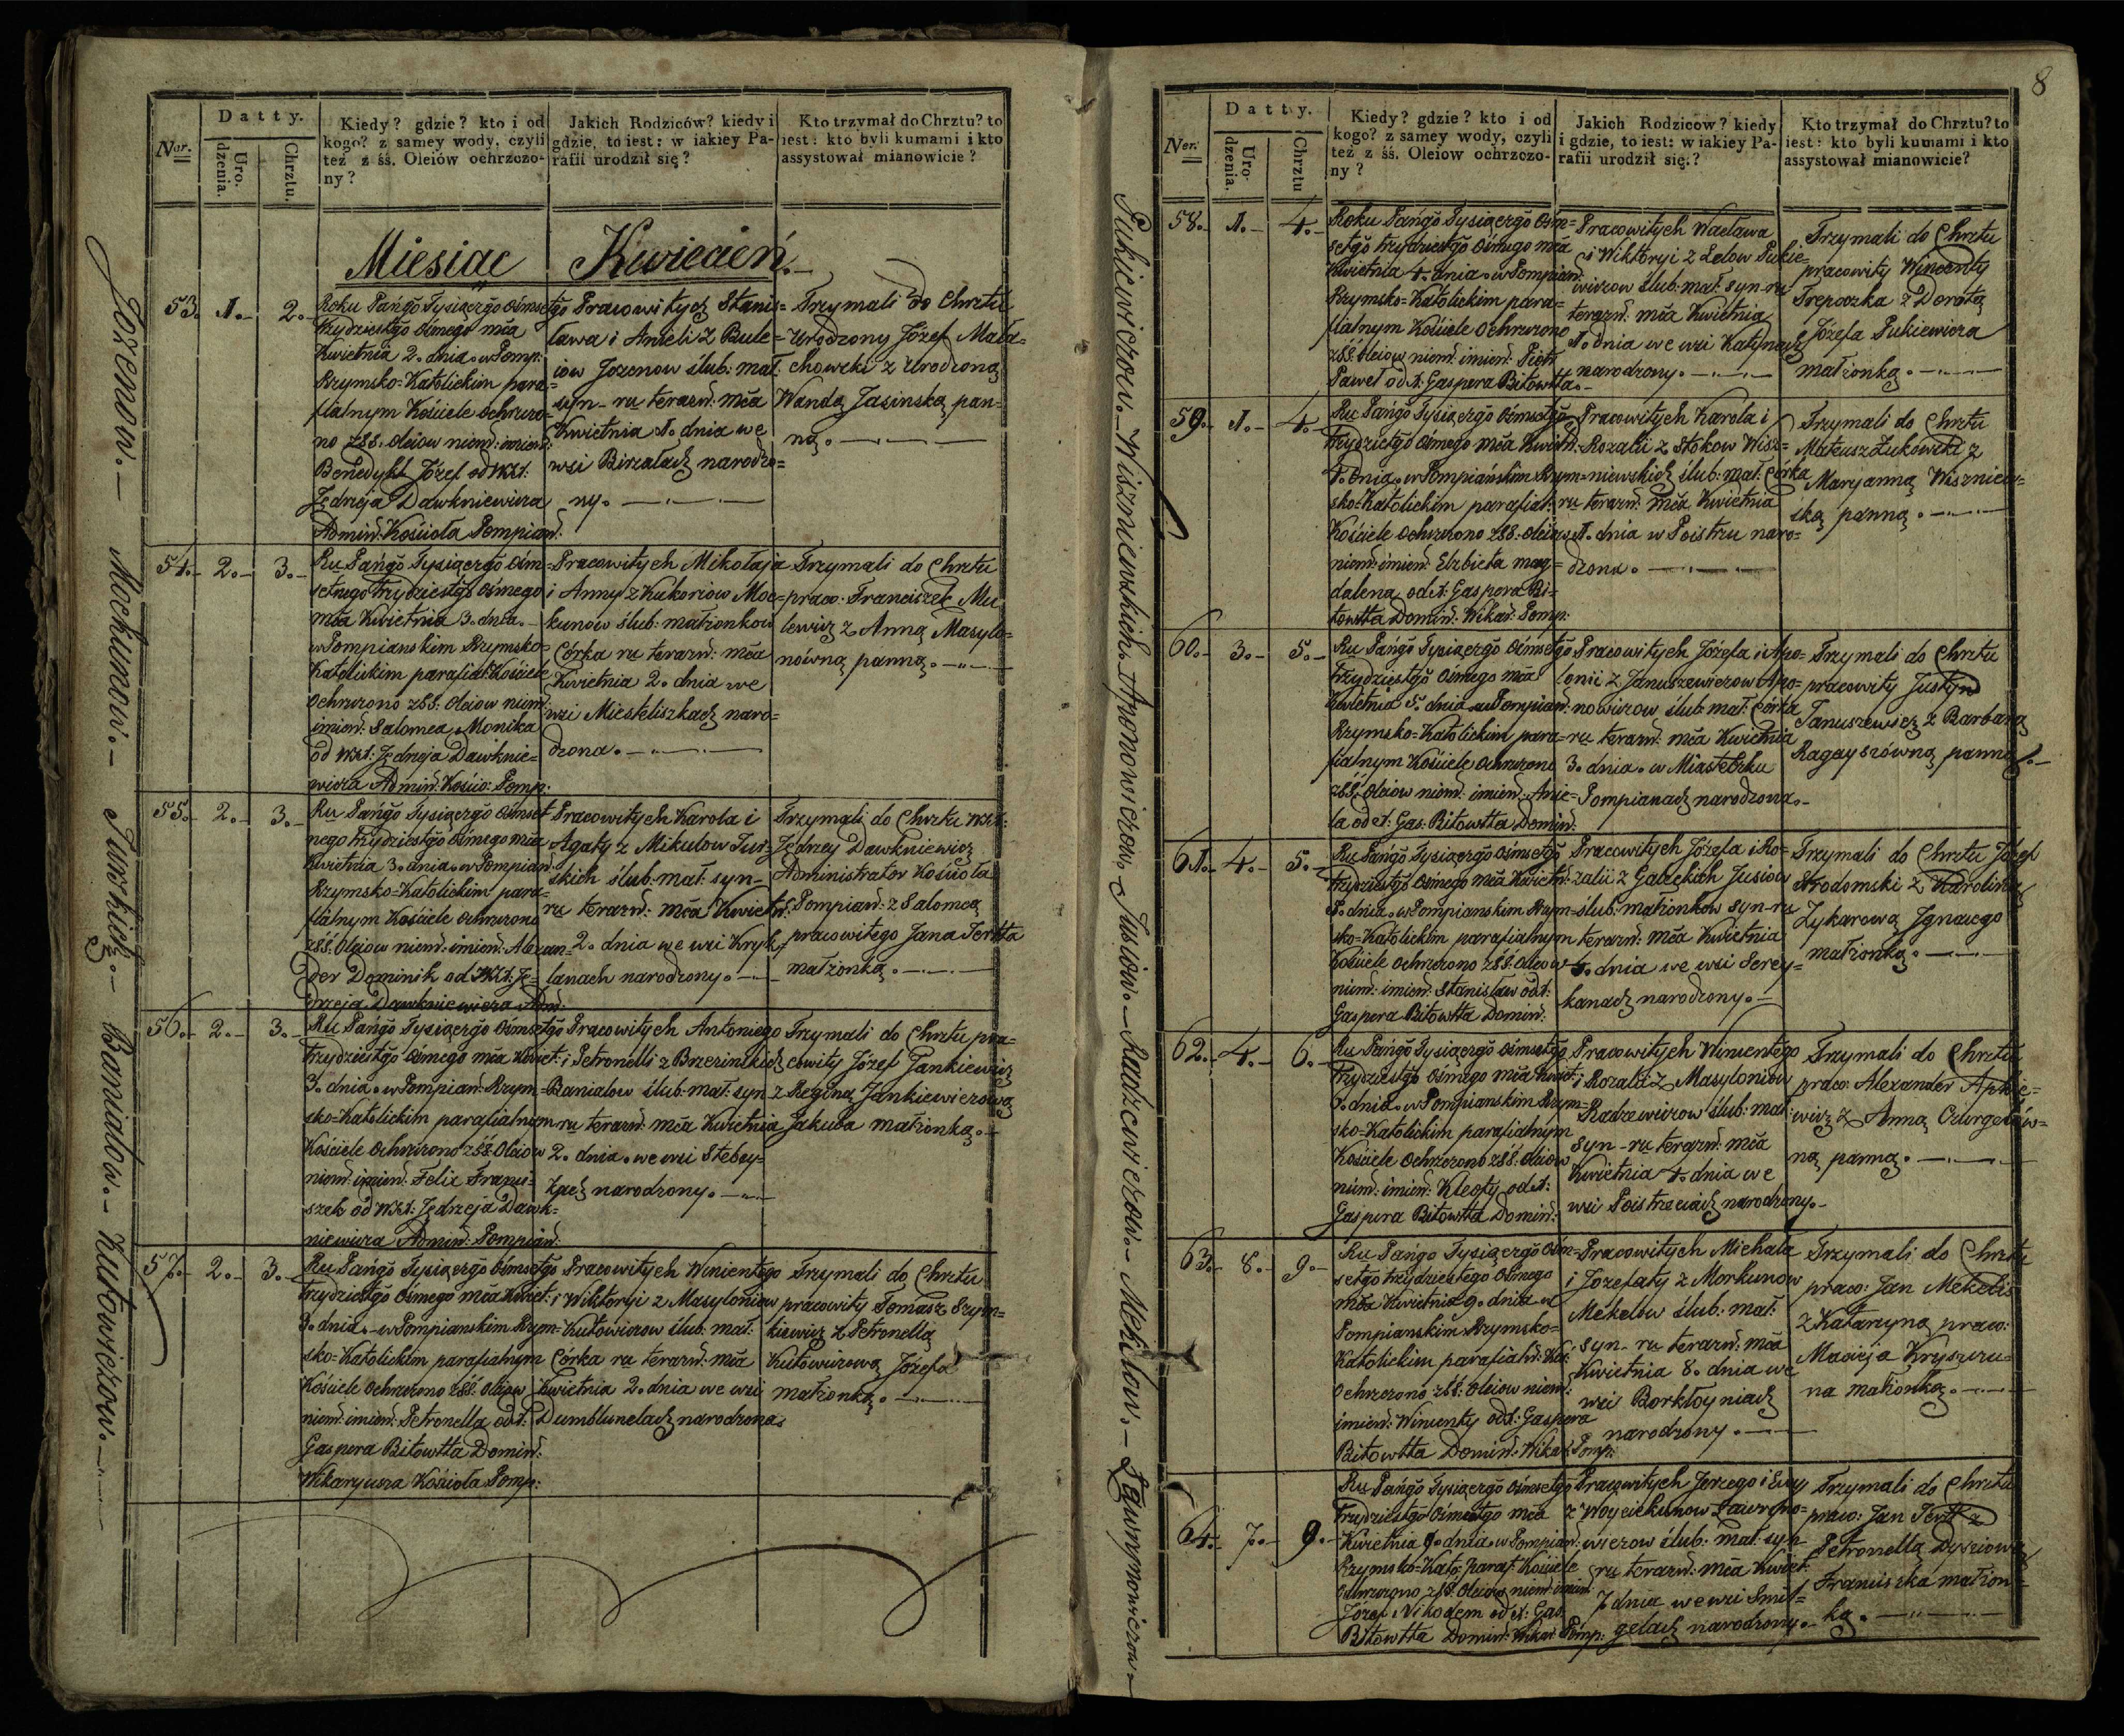 Datty.
Ner.
Uro.
dzenia.
Chrztu.
Kiedy? gdzie? kto i od
kogo? z samey wody, czyli
też z śś. Oleiów ochrzczo-
ny?
Jakich Rodziców? kiedy i
gdzie, to iest: w iakiey Pa-
rafii urodził się?
Kto trzymał do Chrztu? to
iest: kto byli kumami i kto
assystował mianowicie?
Miesiąc Kwiecień.
53. 1. 2.
Roku Pańgo Tysiączgo Ośmsetgo
trzydziestgo Ośmego mca
Kwietnia 2. dnia w Pomp:
Rzymsko=Katolickim para=
fialnym Kościele Ochrzczo=
no z SS. Oleiow niem: imien:
Benedykt Józef od WXt:
Jędrzeja Dawkniewicza
Admin: Kościoła Pompian:
Pracowitych Stanis=
ława i Anieli z Bule=
iow Jozenow ślub: mał:
syn ru terazn: mca
Kwietnia 1. dnia we
wsi Birzalach narodzo=
ny.
Trzymali do Chrztu
Urodzony Józef Mala=
chowski z Urodzoną
Wandą Jasinską pan=
ną.
54. 2. 3.
Ru Pańgo Tysiączgo Ośm=
setnego Trzydziestgo Ośmego
mca Kwietnia 3. dnia
w Pompianskim Rzymsko=
Katolickim parafial: Kościele
Ochrzczono z SS. Oleiow niem:
imien: Salomea Monika
od WXt: Jędrzeja Dawknie=
wicza Admin: Kościo: Pomp:
Pracowitych Mikołaja
i Anny z Kukoriow Moc=
kunow ślub: małżonkow
Córka ru terazn: mca
Kwietnia 2. dnia we
wsi Miesteliszkach naro=
dzona.
Trzymali do Chrztu
praco: Franciszek Mu
lewicz z Anną Masylo=
nówną panną.
55. 2. 3.
Ru Pańgo Tysiączgo Ośmset
nego trzydziestgo Ośmego mca
Kwietnia 3. dnia w Pompian:
Rzymsko=Katolickim para=
fialnym Kościele Ochrzczono
z SS. Oleiow niem: imien: Alexan=
der Dominik od WXt: Ję=
drzeja Dawkniewicza Adm:
Pracowitych Karola i
Agaty z Mikulow Tur=
skich ślub: mał: syn
ru terazn: mca Kwietn:
2. dnia we wsi Kryk=
lanach narodzony.
Trzymali do Chrztu WXt:
Jędrzey Dawkniewicz
Administrator Kościoła
Pompian: z Salomeą
pracowitego Jana Tertta
małżonką.
56. 2. 3.
Ru Pańgo Tysiączgo Ośmsetgo
trzydziestgo Ośmego mca Kwiet:
3. dnia w Pompian: Rzym=
sko=Katolickim parafialnym
Kościele Ochrzczono z SS. Oleiow
niem: imien: Felix Franci=
szek od WXt: Jędrzeja Dawk=
niewicza Admin: Pompian:
Pracowitych Antoniego
i Petronelli z Brzezinskich
Banialow ślub: mał: syn
ru terazn: mca Kwietnia
2. dnia we wsi Stebey=
kach narodzony.
Trzymali do Chrztu pra=
cowity Józef Jankiewicz
z Reginą Jankiewiczową
Jakuba małżonką.
57. 2. 3.
Ru Pańgo Tysiączgo Ośmsetgo
trzydziestgo Ośmego mca Kwiet:
3. dnia w Pompianskim Rzym=
sko=Katolickim parafialnym
Kościele Ochrzczono z SS. Oleiow
niem: imien: Petronella od X:
Gaspera Bitowtta Domin:
Wikaryusza Kościoła Pomp:
Pracowitych Wincentego
i Wiktoryi z Masyloniow
Kutowiczow ślub: mał:
Córka ru terazn: mca
Kwietnia 2. dnia we wsi
Dumblunelach narodzona.
Trzymali do Chrztu
pracowity Tomasz Szym=
kiewicz z Petronellą
Kutowiczową Józefa
małżonką.
Jozenow. Mockunow. Turskich. Banialow. Kutowiczow.
8
Datty.
Ner.
Uro-
dzenia.
Chrztu
Kiedy? gdzie? kto i od
kogo? z samey wody, czyli
też z śś. Oleiow ochrzczo-
ny?
Jakich Rodziców? kiedy
i gdzie, to iest: w iakiey Pa-
rafii urodził się.?
Kto trzymał do Chrztu? to
iest: kto byli kumami i kto
assystował mianowicie?
58. 1. 4.
Roku Pańgo Tysiączgo Ośm=
setgo trzydziestgo Ośmego mca
Kwietnia 4. dnia w Pompian:
Rzymsko=Katolickim para=
fialnym Kościele Ochrzczono
z SS. Oleiow niem: imien: Piotr
Paweł od X: Gaspera Bitowtta.
Pracowitych Wacława
i Wiktoryi z Lalow Pukie=
wiczow ślub: mał: syn ru
terazn: mca Kwietnia
1. dnia we wsi Katynach
narodzony.
Trzymali do Chrztu
pracowity Wincenty
Trepoczka z Dorotą
Józefa Pukiewicza
małżonką.
59. 1. 4.
Ru Pańgo Tysiączgo Ośmsetgo
trzydziestgo Ośmego mca Kwietn:
4. dnia w Pompiańskim Rzym=
sko=Katolickim parafial:
Kościele Ochrzczono z SS. Oleiow
niem: imien: Elzbieta Mag=
dalena od X: Gaspera Bi=
towtta Domin: Wikar: Pomp:
Pracowitych Karola i
Rozalii z Stokow Wisz=
niewskich ślub: mał: Córka
ru terazn: mca Kwietnia
1. dnia w Poistru naro=
dzona.
Trzymali do Chrztu
Mateusz Żukowski z
Maryanną Wiszniew=
ską panną.
60. 3. 5.
Ru Pańgo Tysiączgo Ośmsetgo
Trzydziestgo Ośmego mca
Kwietnia 5. dnia w Pompian:
Rzymsko=Katolickim para=
fialnym Kościele Ochrzczono
z SS. Oleiow niem: imien: Anie=
la od X: Gas: Bitowtta Domin:
Pracowitych Józefa i Apo=
lonii z Januszewiczow Apo=
nowiczow ślub: mał: Córka
ru terazn: mca Kwietnia
3. dnia w Miasteczku
Pompianach narodzona.
Trzymali do Chrztu
pracowity Justyn
Januszewicz z Barbarą
Ragayszówną panną.
61. 4. 5.
Ru Pańgo Tysiączgo Ośmsetgo
trzydziestgo Ośmego mca Kwietn:
5. dnia w Pompianskim Rzym=
sko=Katolickim parafialnym
Kościele Ochrzczono z SS. Oleiow
niem: imien: Stanisław od X:
Gaspera Bitowtta Domin:
Pracowitych Józefa i Ro=
zalii z Gałeckich Jusiow
ślub: małżonkow syn ru
terazn: mca Kwietnia
4. dnia we wsi Serey=
kanach narodzony.
Trzymali do Chrztu Józef
Strodomski z Karoliną
Zykarową Ignacego
małżonką.
62. 4. 6.
Ru Pańgo Tysiączgo Ośmsetgo
Trzydziestgo Ośmego mca Kwiet:
6. dnia w Pompianskim Rzym=
sko=Katolickim parafialnym
Kościele Ochrzczono z SS. Oleiow
niem: imien: Kleofy od X:
Gaspera Bitowtta Domin:
Pracowitych Wincentego
i Rozalii z Masyloniow
Radzewiczow ślub: mał:
syn ru terazn: mca
Kwietnia 4. dnia we
wsi Poistrzeciach narodzony.
Trzymali do Chrztu
praco: Alexander
wicz z Anną
ną panną.
63. 8. 9.
Ru Pańgo Tysiączgo Ośm=
setgo trzydziestego Ośmego
mca Kwietnia 9. dnia w
Pompianskim Rzymsko=
Katolickim parafialn: Koś:
Ochrzczono z SS. Oleiow niem:
imien: Wincenty od X: Gaspera
Bitowtta Domin: Wikar: Pomp:
Pracowitych Michała
i Jozefaty z Morkunow
Mekelow ślub: mał:
syn ru terazn: mca
Kwietnia 8. dnia we
wsi Borkłoyniach
narodzony.
Trzymali do Chrztu
praco: Jan Mekelis
z Katarzyną praco:
Macieja Kryszczu=
na małżonką.
64. 7. 9.
Ru Pańgo Tysiączgo Ośmsetgo
Trzydziestgo Ośmego mca
Kwietnia 9. dnia w Pompian:
Rzymsko=Kato: paraf: Kościele
Ochrzczono z SS. Oleiow niem: imien:
Józef Nikodem od X: Gas:
Bitowtta Domin: Wikar: Pomp:
Pracowitych Jerzego i Ewy
z Woyciekunow Ławryno=
wiczow ślub: mał: syn
ru terazn: mca Kwiet:
7 dnia we wsi Smil=
gelach narodzony.
Trzymali do Chrztu
praco: Jan Tertt z
Petronellą Dysiową
Franciszka małżon=
ką.
Pukiewiczow. Wiszniewskich. Aponowiczow. Jusiow. Radzewiczow. Mekelow. Ławrynowiczow.